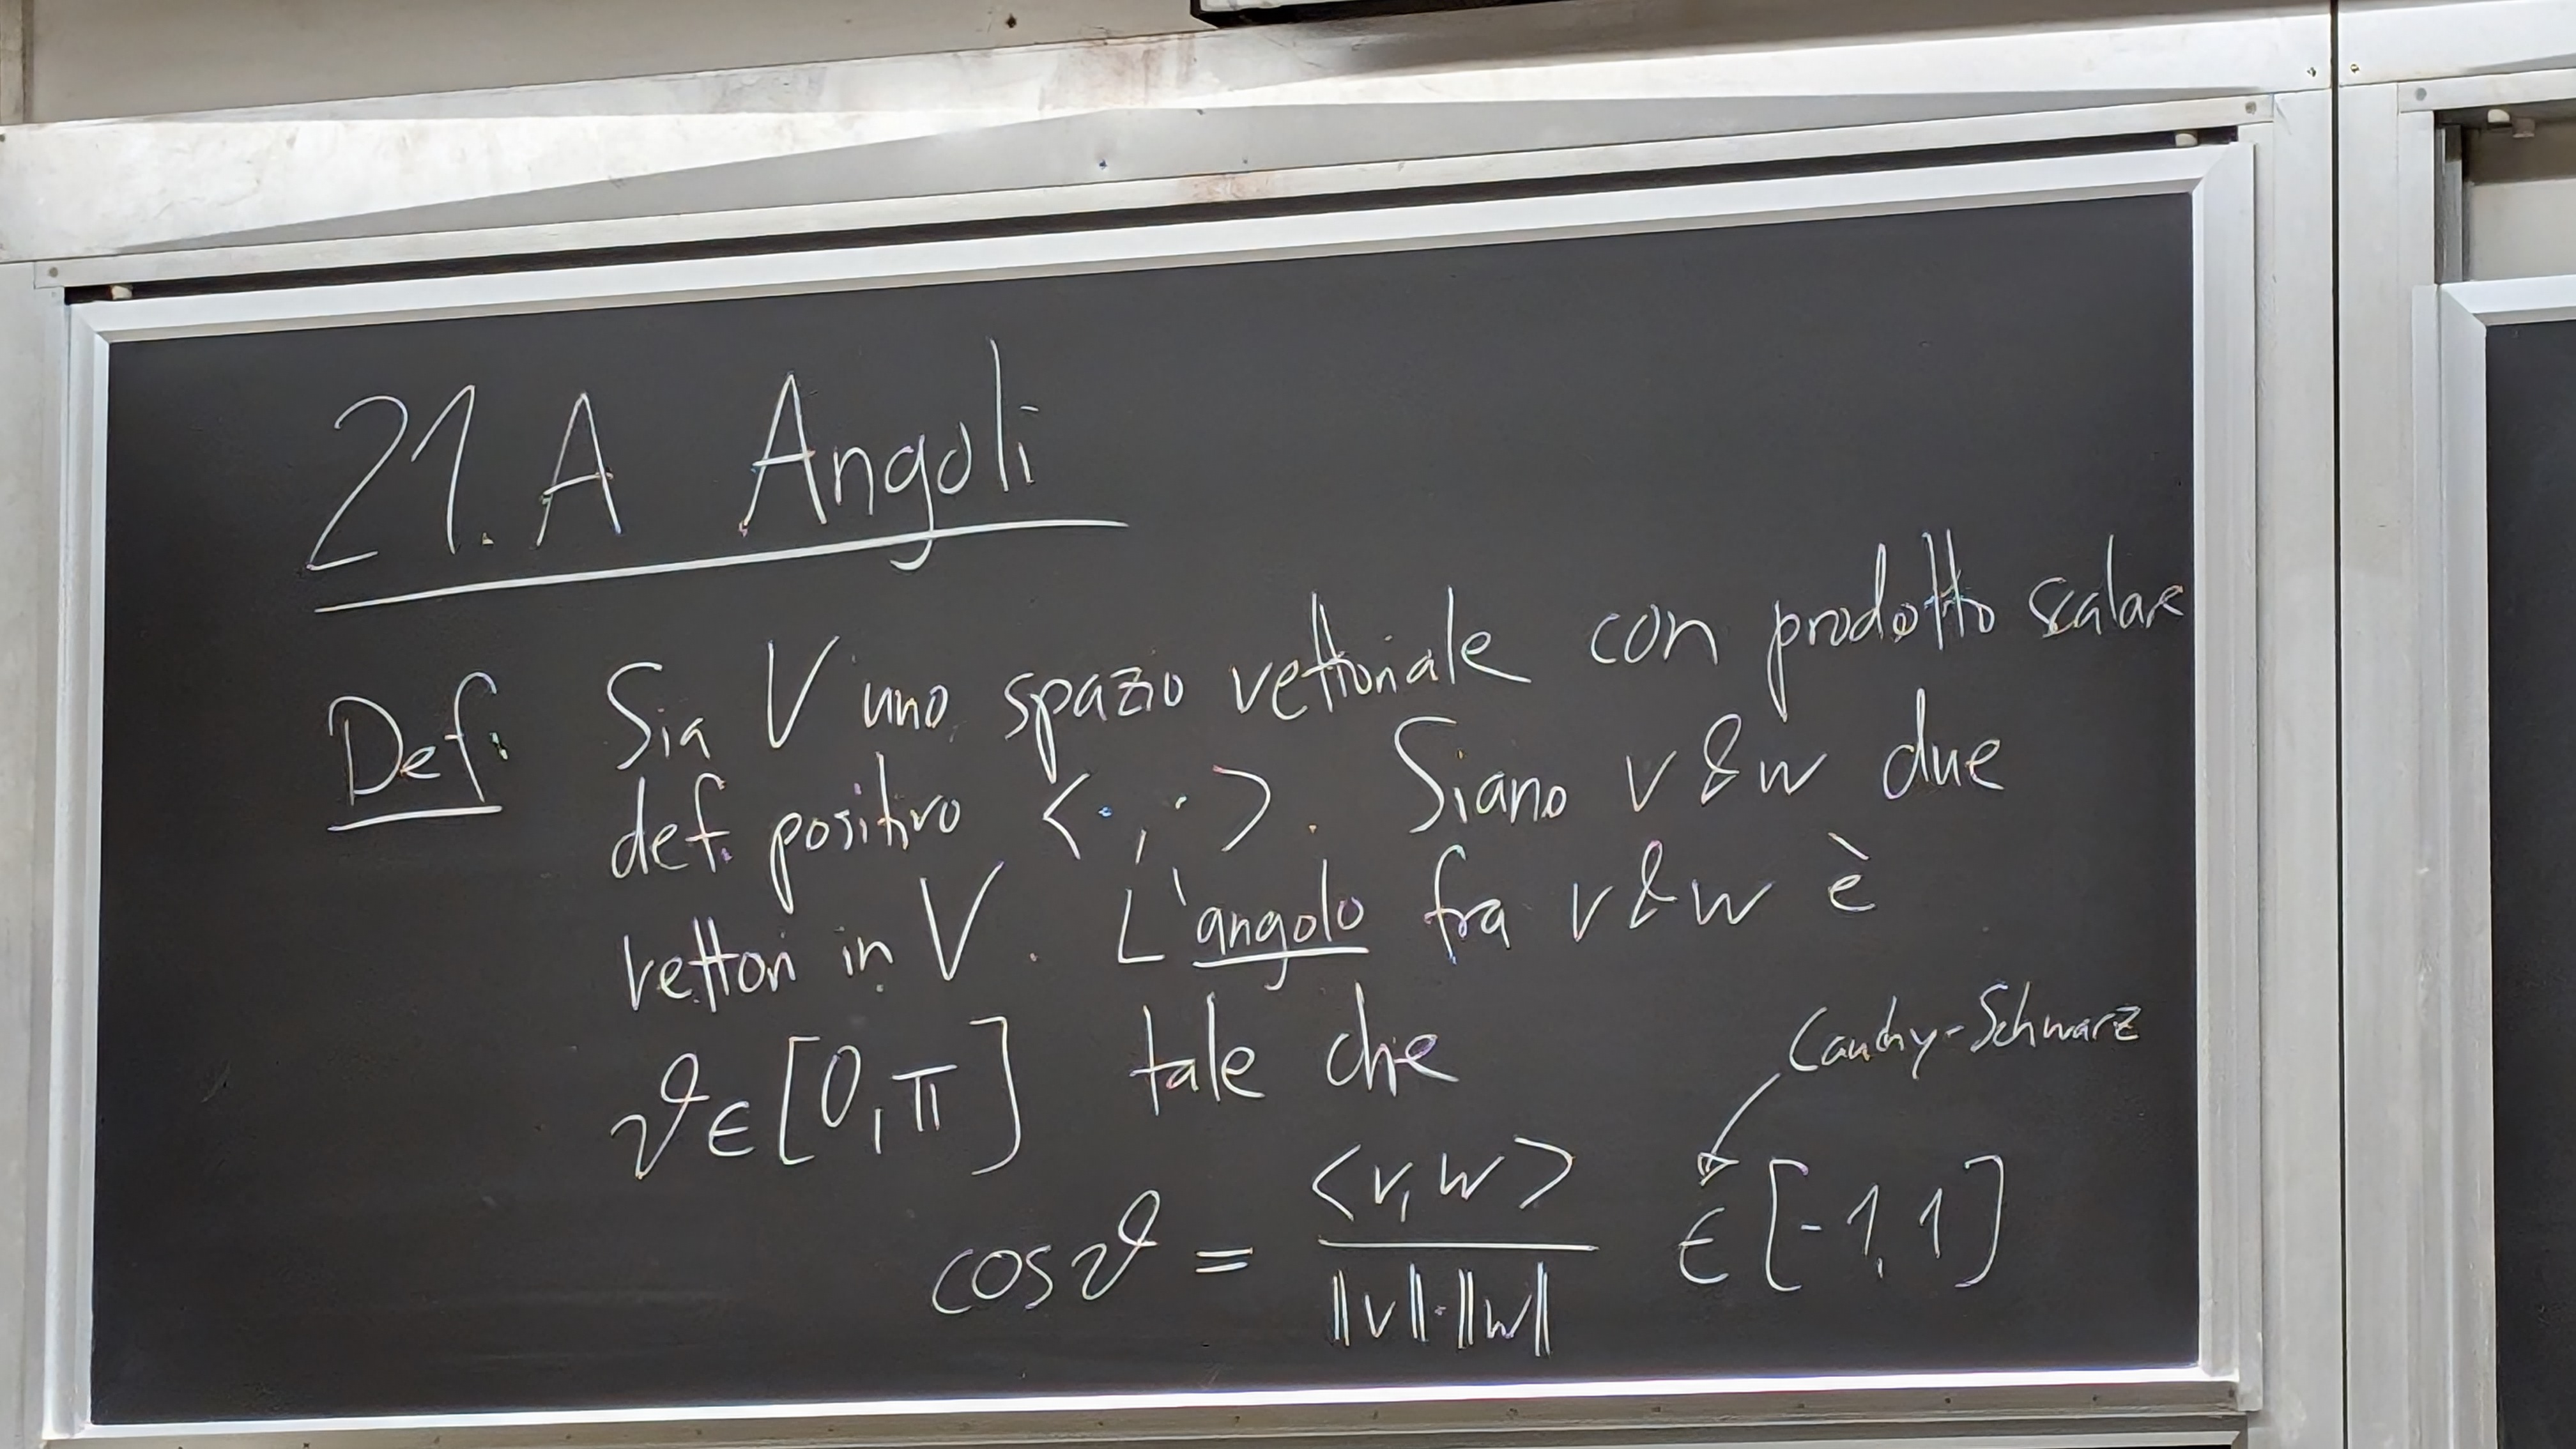 21. A Angoli
Def: Sia V uno spazio vettoriale con prodotto scalare
def. positivo <·,·>. Siano v & w due
vettori in V. L'angolo fra v & w è
ϑ∈[0,π] tale che
Cauchy-Schwarz
cos ϑ = <v,w> / ‖v‖·‖w‖ ∈ [-1,1]